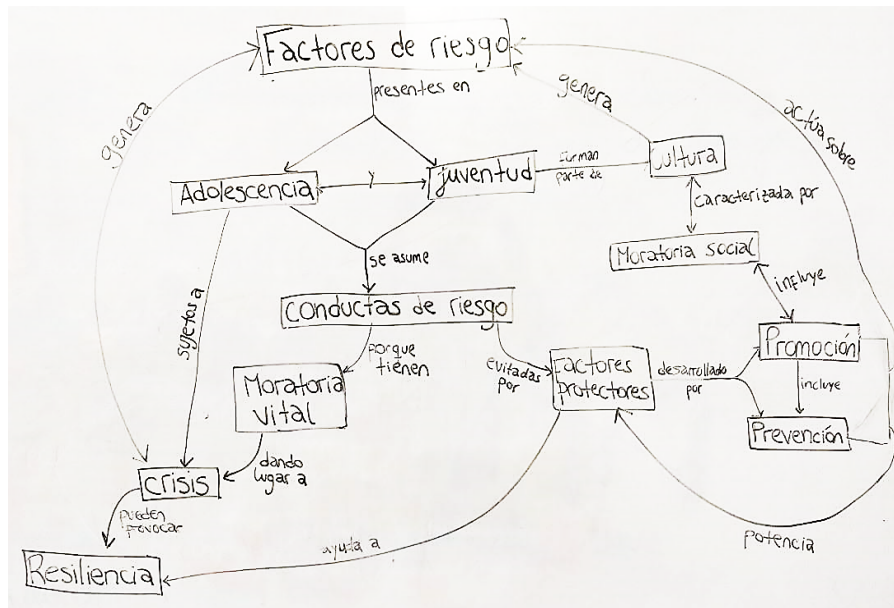 Factores de riesgo
presentes en
genera
genera
actúa sobre
Adolescencia
y
juventud
forman
parte de
cultura
caracterizada por
Moratoria social
se asume
incluye
sujetos a
Conductas de riesgo
porque
tienen
evitadas
por
Factores
protectores
desarrollado
por
Promoción
incluye
Prevención
Moratoria
vital
dando
lugar a
crisis
pueden
provocar
Resiliencia
ayuda a
potencia